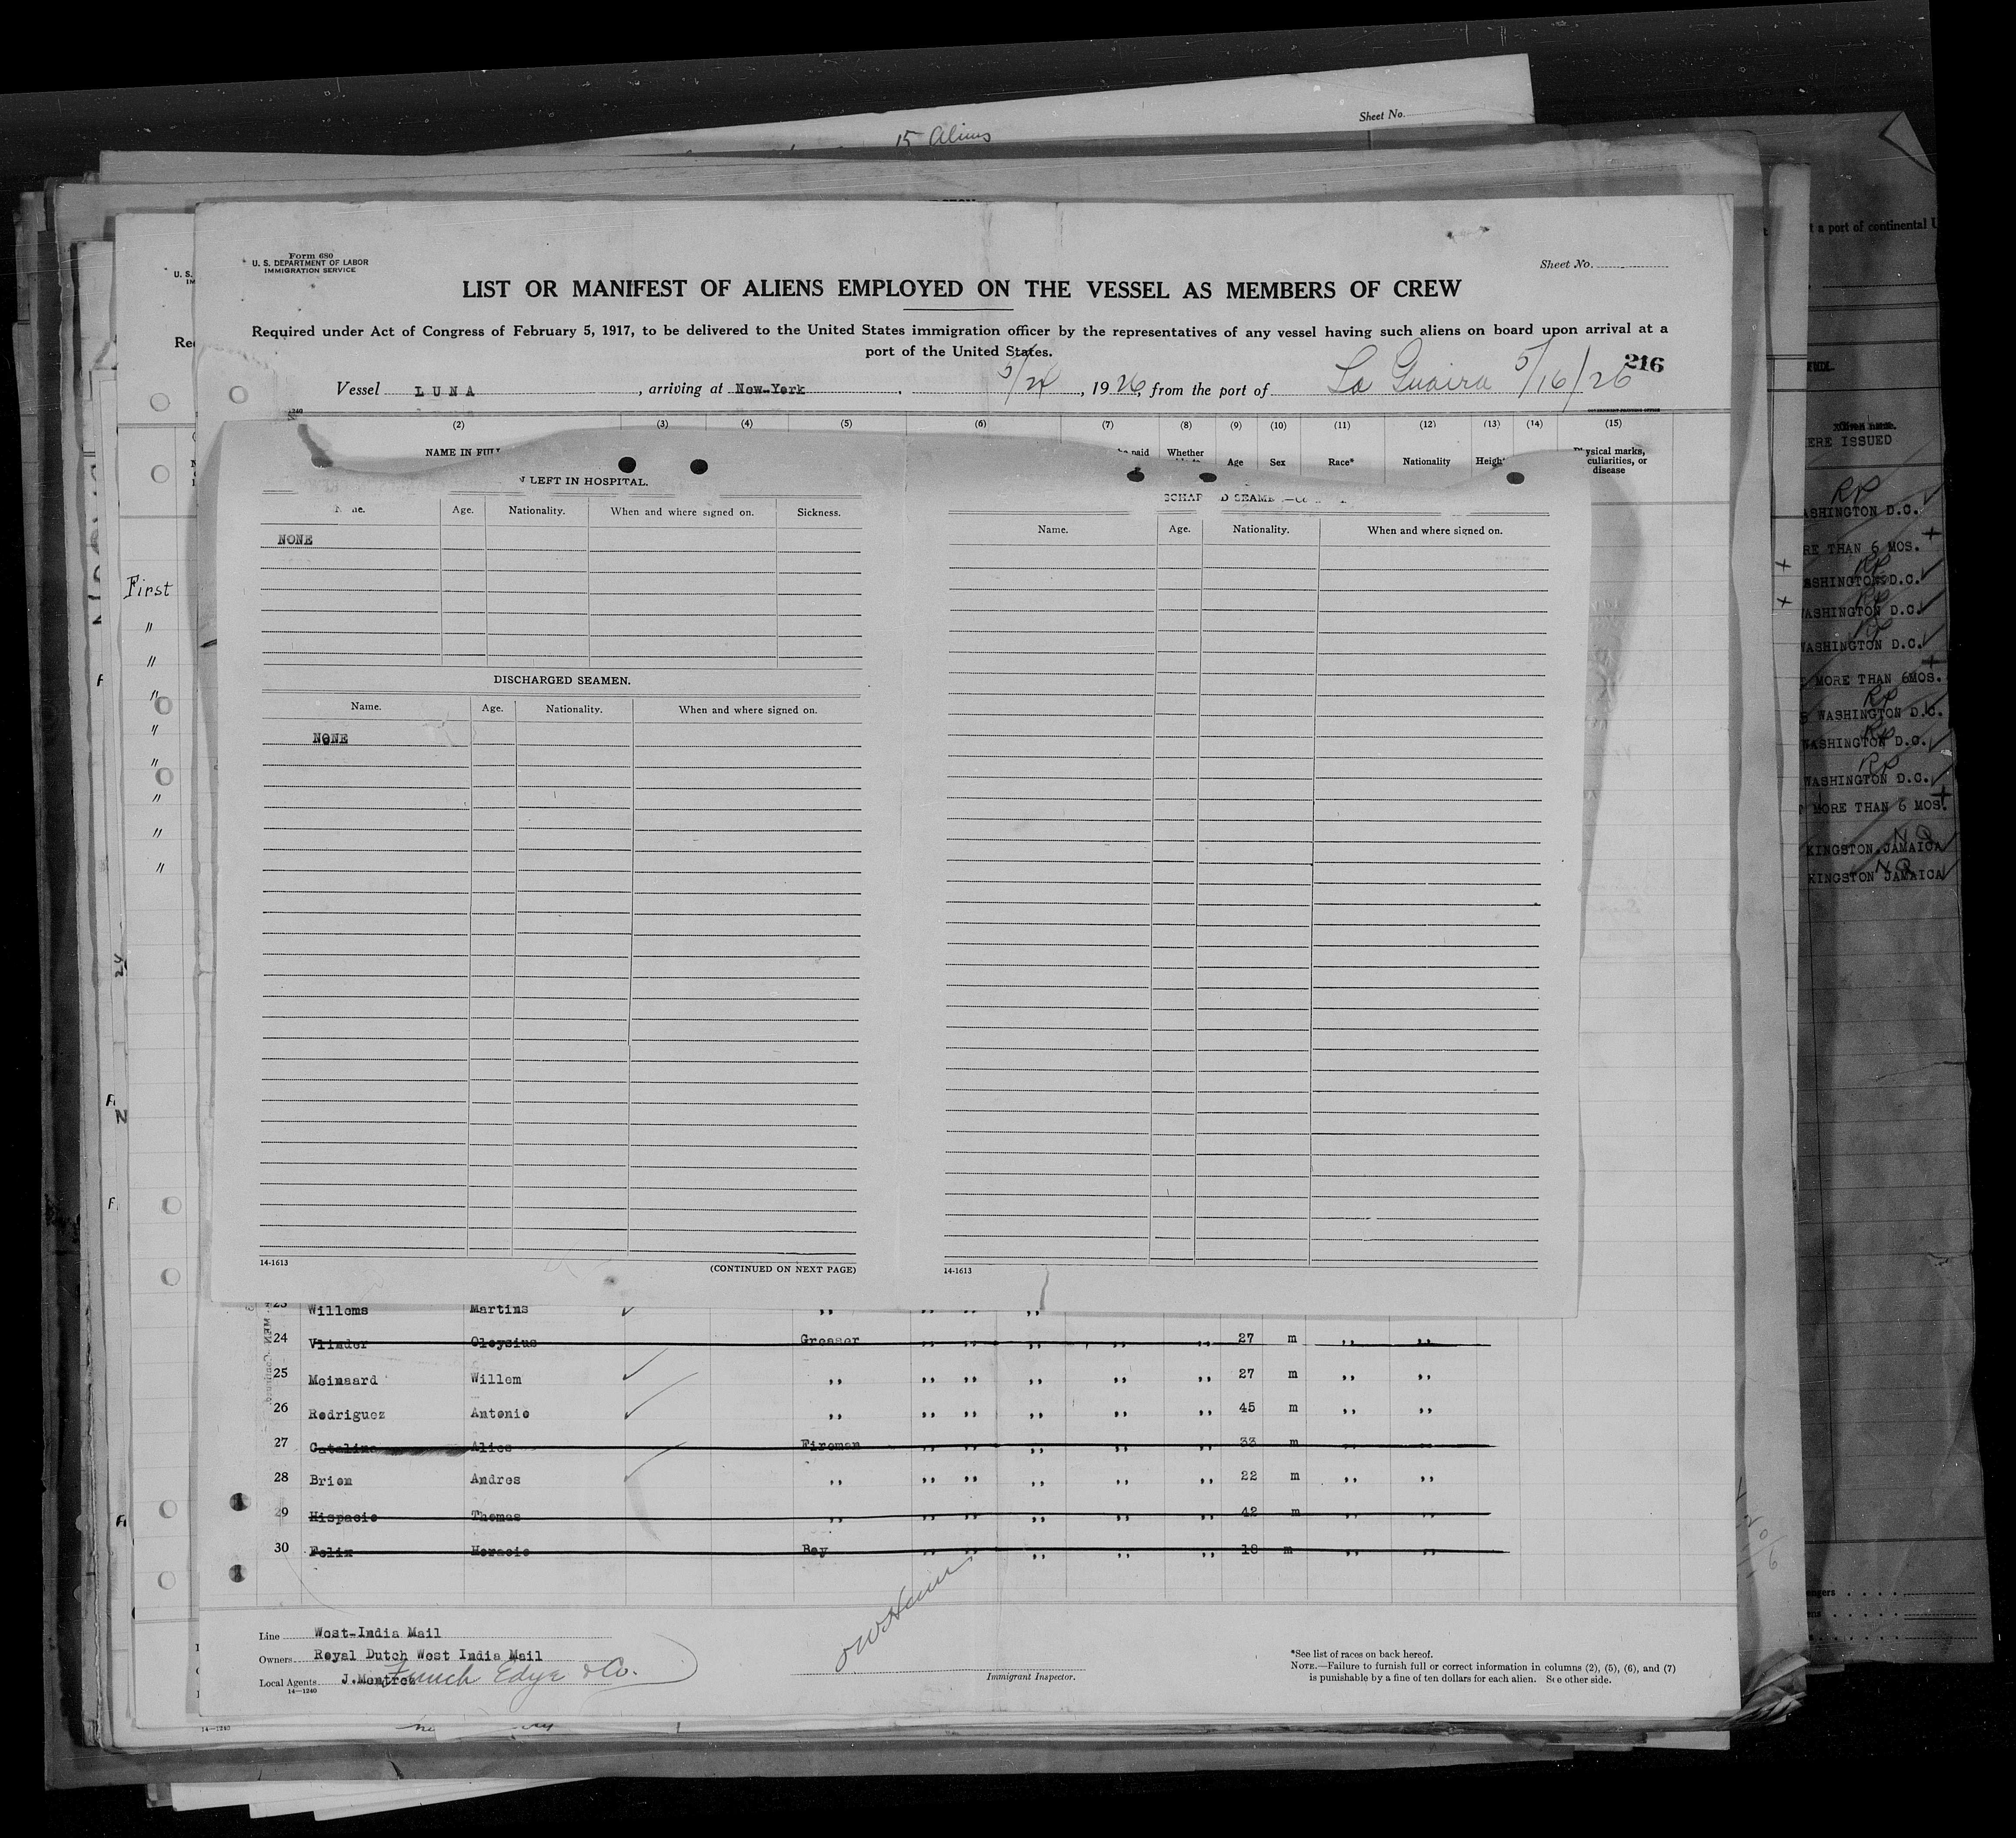 Sheet No.
15 Aliens
t a port of continental U
Form 680
U. S. DEPARTMENT OF LABOR
IMMIGRATION SERVICE
Sheet No.
LIST OR MANIFEST OF ALIENS EMPLOYED ON THE VESSEL AS MEMBERS OF CREW
Required under Act of Congress of February 5, 1917, to be delivered to the United States immigration officer by the representatives of any vessel having such aliens on board upon arrival at a
port of the United States.
216
Vessel LUNA, arriving at New-York, 5/24, 1926, from the port of La Guaira 5/16/26
(2) (3) (4) (5) (6) (7) (8) (9) (10) (11) (12) (13) (14) (15)
NAME IN FULL
Whether
Age Sex Race* Nationality Heigh
Physical marks,
culiarities, or
disease
LEFT IN HOSPITAL.
Age. Nationality. When and where signed on. Sickness.
NONE
DISCHARGED SEAMEN.
Name. Age. Nationality. When and where signed on.
NONE
14-1613
(CONTINUED ON NEXT PAGE)
Name. Age. Nationality. When and where signed on.
14-1613
First
"
"
"
"
"
"
"
"
ERE ISSUED
RP
ASHINGTON D.C.
RE THAN 6 MOS.
RP
ASHINGTON D.C.
RP
ASHINGTON D.C.
RP
WASHINGTON D.C.
MORE THAN 6MOS.
RP
WASHINGTON D.C.
RP
WASHINGTON D.C.
RP
WASHINGTON D.C.
MORE THAN 6 MOS.
NQ
KINGSTON JAMAICA
NQ
KINGSTON JAMAICA
23 Willems Martins ,, ,, ,, ,,
24 Vlinder Oleysius Greaser ,, ,, ,, ,, ,, 27 m ,, ,,
25 Meinaard Willem ,, ,, ,, ,, ,, ,, 27 m ,, ,,
26 Redriguez Antenie ,, ,, ,, ,, ,, ,, 45 m ,, ,,
27 Catalina Alies Fireman ,, ,, ,, ,, ,, 33 m ,, ,,
28 Briem Andres ,, ,, ,, ,, ,, ,, 22 m ,, ,,
29 Hispacie Themas ,, ,, ,, ,, ,, ,, 42 m ,, ,,
30 Felix Heracie Bey ,, ,, ,, ,, ,, 18 m ,, ,,
Line West-India Mail
Owners Reyal Dutch West India Mail
Local Agents J.Mentres Funch Edye & Co.
14—1240
Immigrant Inspector.
*See list of races on back hereof.
NOTE.—Failure to furnish full or correct information in columns (2), (5), (6), and (7)
is punishable by a fine of ten dollars for each alien. See other side.